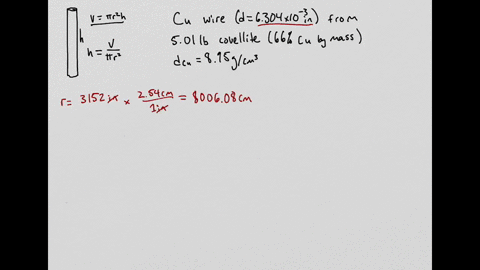 V = πr²h
h
h = V/πr²
Cu wire (d = 6.304×10⁻³ in) from
5.01 lb covellite (66% Cu by mass)
dcu = 8.95 g/cm³
r = 3152 in × 2.54 cm/1 in = 8006.08 cm